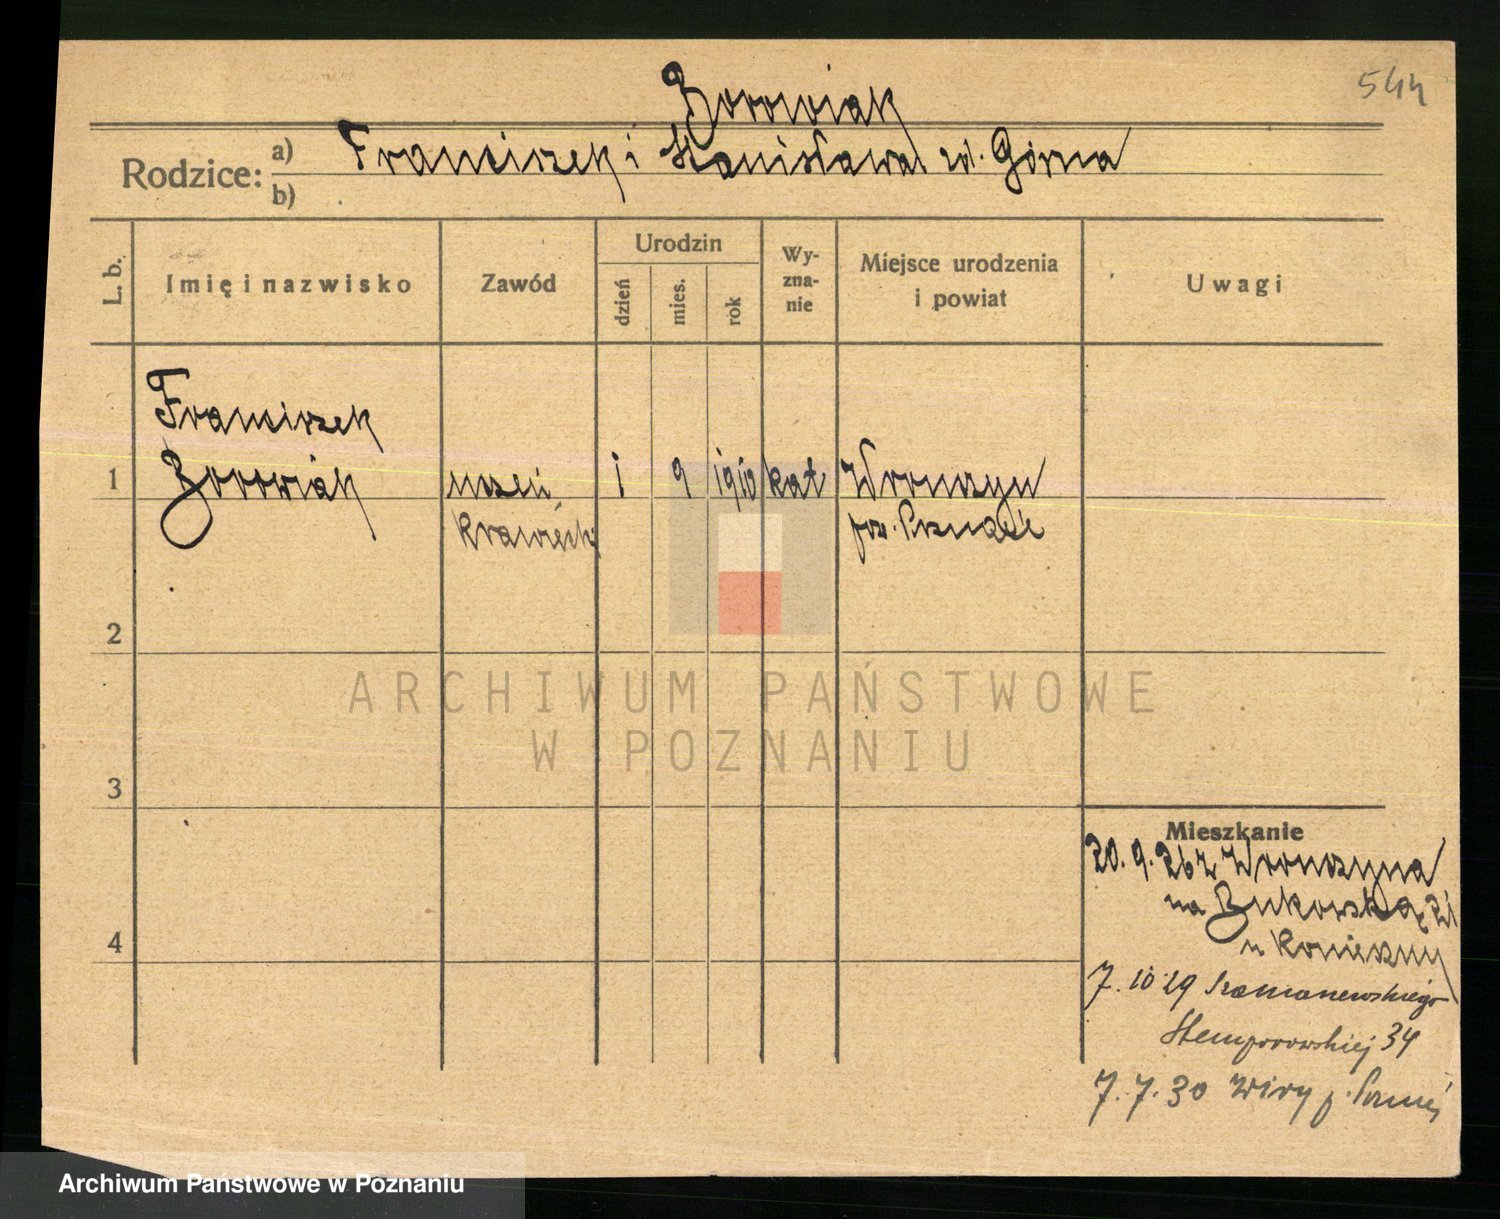 544
Borowiak
Rodzice: a) Franciszek i Stanisława zd. Górna
b)
L. b. Imię i nazwisko Zawód Urodzin dzień mies. rok Wyznanie Miejsce urodzenia i powiat Uwagi
Franciszek
1 Borowiak uczeń 1 9 1910 kat Wronczyn
krawiecki pow. Poznań
2
ARCHIWUM PAŃSTWOWE
W POZNANIU
3
Mieszkanie
20. 9. 26 z Wronczyna
na Bukowską 21
4
u Konieczny
7. 10 29
34
7. 7. 30 Wiry p.
Archiwum Państwowe w Poznaniu